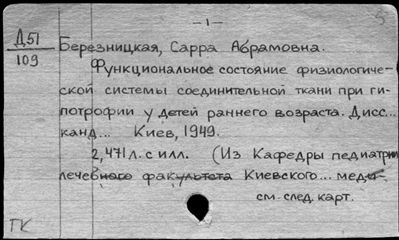 - 1 -
5
Д51
109
Березницкая, Сарра Абрамовна.
Функциональное состояние физиологиче-
ской системы соединительной ткани при ги-
потрофии у детей раннего возраста. Дисс...
канд... Киев, 1949.
2, 471 л. с илл. (Из Кафедры педиатрии
лечебного факультета Киевского... мед-
см. след. карт.
ГК